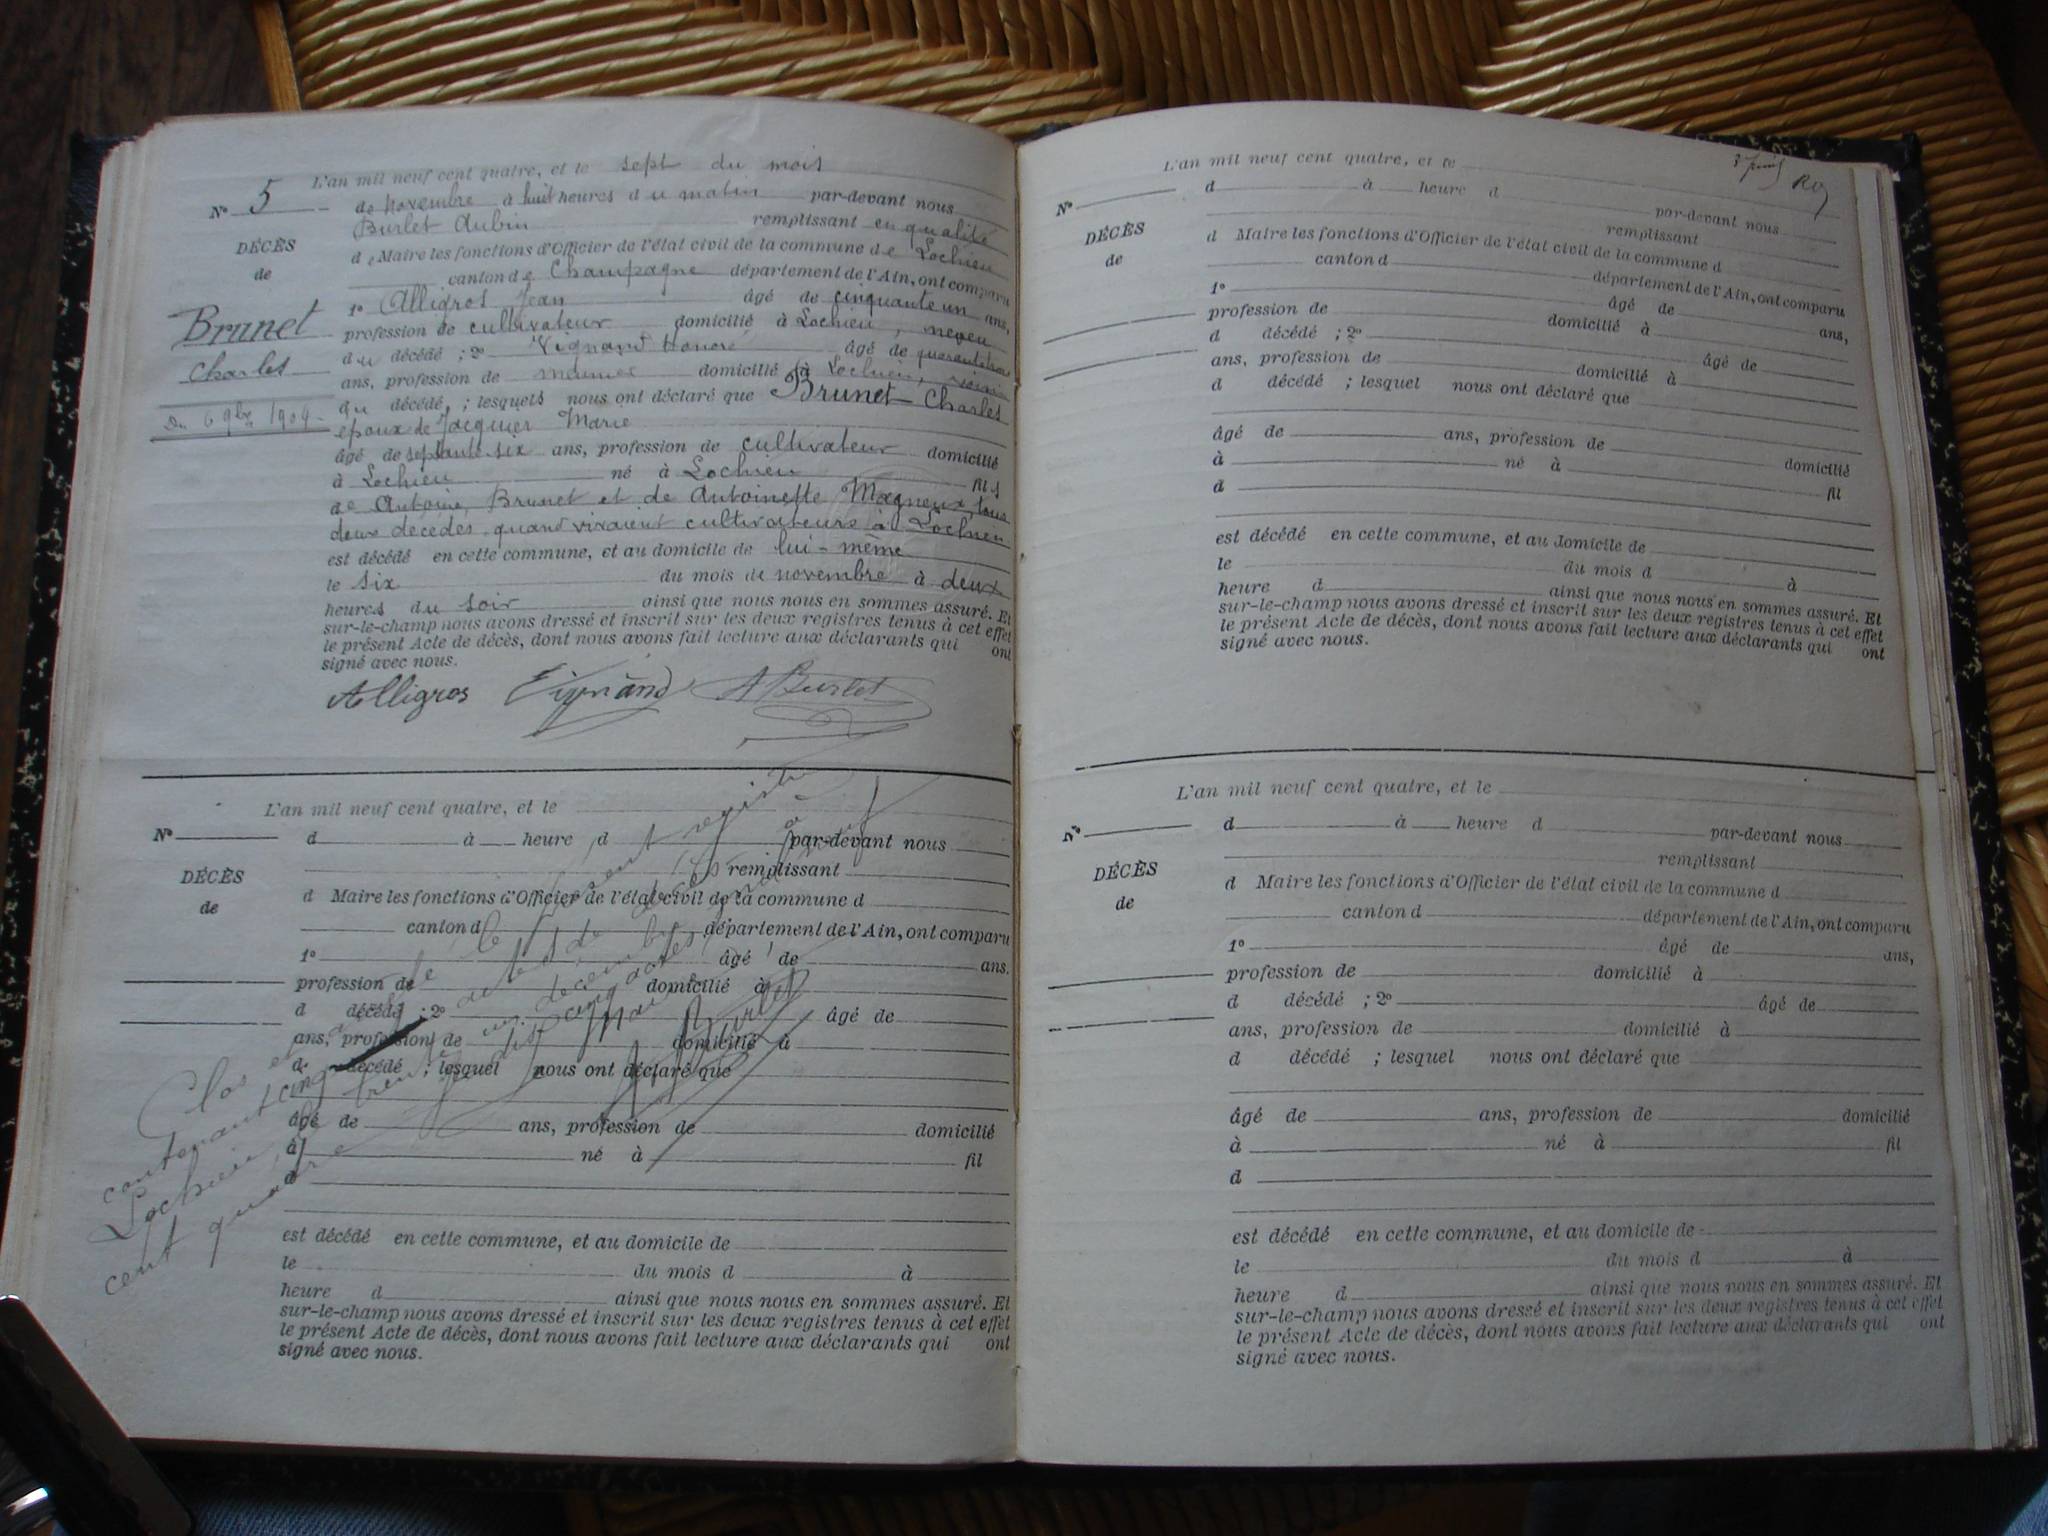 L'an mil neuf cent quatre, et le sept du mois
N° 5
de novembre à huit heures du matin par-devant nous
Burlet Aubin remplissant en qualité
DÉCÈS
de Maire les fonctions d'Officier de l'état civil de la commune de Lochieu
de
canton de Champagne département de l'Ain, ont comparu
1° Alligros Jean âgé de cinquante un ans,
Brunet
profession de cultivateur domicilié à Lochieu, neveu
du décédé ; 2° Vignand Honoré âgé de quarante trois
Charles
ans, profession de meunier domicilié à Lochieu, voisin
du décédé ; lesquels nous ont déclaré que Brunet Charles
Du 6 9bre 1904
époux de Jacquier Marie
âgé de septante six ans, profession de cultivateur domicilié
à Lochieu né à Lochieu fils
de Antoine Brunet et de Antoinette Magneux, tous
deux décédés quand vivaient cultivateurs à Lochieu
est décédé en cette commune, et au domicile de lui-même
le six du mois de novembre à deux
heures du soir ainsi que nous nous en sommes assuré. Et
sur-le-champ nous avons dressé et inscrit sur les deux registres tenus à cet effet
le présent Acte de décès, dont nous avons fait lecture aux déclarants qui ont
signé avec nous.
Alligros Vignand A Burlet
L'an mil neuf cent quatre, et le
N°
d à heure d par-devant nous
remplissant
DÉCÈS
d Maire les fonctions d'Officier de l'état civil de la commune d
de
canton d département de l'Ain, ont comparu
1° âgé de ans.
profession de domicilié à
d décédé ; 2° âgé de
ans, profession de domicilié à
d décédé ; lesquel nous ont déclaré que
âgé de ans, profession de domicilié
à né à fil
d
est décédé en cette commune, et au domicile de
le du mois d à
heure d ainsi que nous nous en sommes assuré. Et
sur-le-champ nous avons dressé et inscrit sur les deux registres tenus à cet effet
le présent Acte de décès, dont nous avons fait lecture aux déclarants qui ont
signé avec nous.
Clos et le présent registre
contenant cinq actes de décès à
Lochieu, le trente un décembre mil neuf
cent quatre
A Burlet
L'an mil neuf cent quatre, et le
N°
d à heure d par-devant nous
remplissant
DÉCÈS
d Maire les fonctions d'Officier de l'état civil de la commune d
de
canton d département de l'Ain, ont comparu
1° âgé de ans,
profession de domicilié à
d décédé ; 2° âgé de
ans, profession de domicilié à
d décédé ; lesquel nous ont déclaré que
âgé de ans, profession de domicilié
à né à fil
d
est décédé en cette commune, et au domicile de
le du mois d à
heure d ainsi que nous nous en sommes assuré. Et
sur-le-champ nous avons dressé et inscrit sur les deux registres tenus à cet effet
le présent Acte de décès, dont nous avons fait lecture aux déclarants qui ont
signé avec nous.
L'an mil neuf cent quatre, et le
N°
d à heure d par-devant nous
remplissant
DÉCÈS
d Maire les fonctions d'Officier de l'état civil de la commune d
de
canton d département de l'Ain, ont comparu
1° âgé de ans,
profession de domicilié à
d décédé ; 2° âgé de
ans, profession de domicilié à
d décédé ; lesquel nous ont déclaré que
âgé de ans, profession de domicilié
à né à fil
d
est décédé en cette commune, et au domicile de
le du mois d à
heure d ainsi que nous nous en sommes assuré. Et
sur-le-champ nous avons dressé et inscrit sur les deux registres tenus à cet effet
le présent Acte de décès, dont nous avons fait lecture aux déclarants qui ont
signé avec nous.